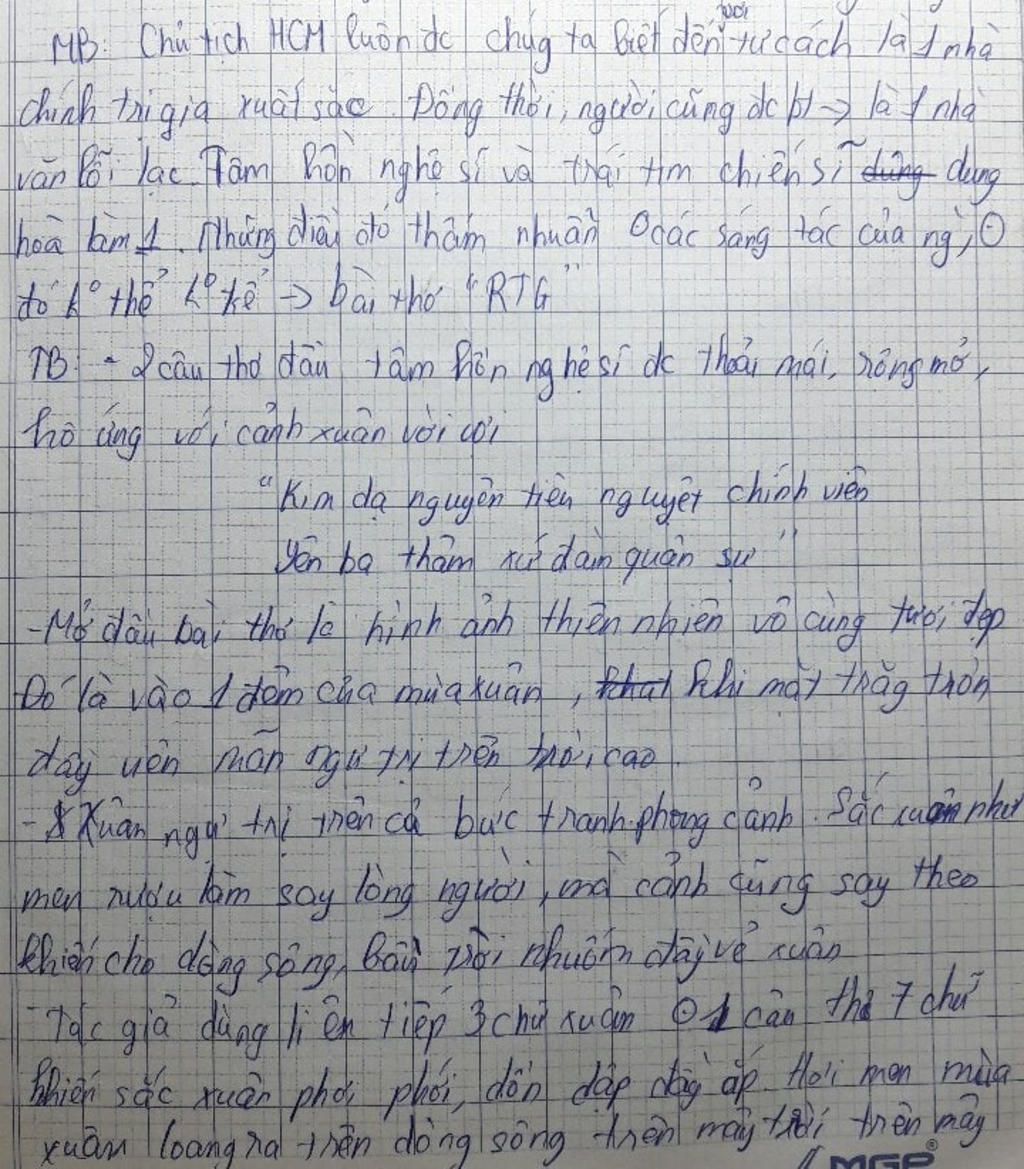 với
MB: Chủ tịch HCM luôn dc chúg ta biết đến tư cách là 1 nhà
chính trị gia xuất sắc. Đồng thời, người cũng dc bt → là 1 nhà
văn lỗi lạc. Tâm hồn nghệ sĩ và trái tim chiến sĩ dũng dung
hoà làm 1. Những điều đó thấm nhuần ⊙ các sáng tác của ng`, ⊙
đó k° thể k° kể → bài thơ "RTG"
TB: - 2 câu thơ đầu tâm hồn nghệ sĩ dc thoải mái, rộng mở,
hô ứng với cảnh xuân vời vợi
"Kim dạ nguyên tiêu nguyệt chính viên
Yên ba thâm xứ đàm quân sự"
- Mở đầu bài thơ là hình ảnh thiên nhiên vô cùng tươi đẹp
Đó là vào 1 đêm của mùa xuân, khi mặt trăg tròn
đầy viên mãn ngự trị trên trời cao.
- Xuân ngự trị trên cả bức tranh phong cảnh. Sắc xuân như
men rượu làm say lòng người, mà cảnh cũng say theo
khiến cho dòng sông, bầu trời nhuốm đầy vẻ xuân
- Tác giả dùng liên tiếp 3 chữ xuân ⊙ 1 câu thơ 7 chữ
khiến sắc xuân phơi phới, dồn dập đầy ắp. Hơi men mùa
xuân loang ra trên dòng sông trên mây trời trên mây
MGP®